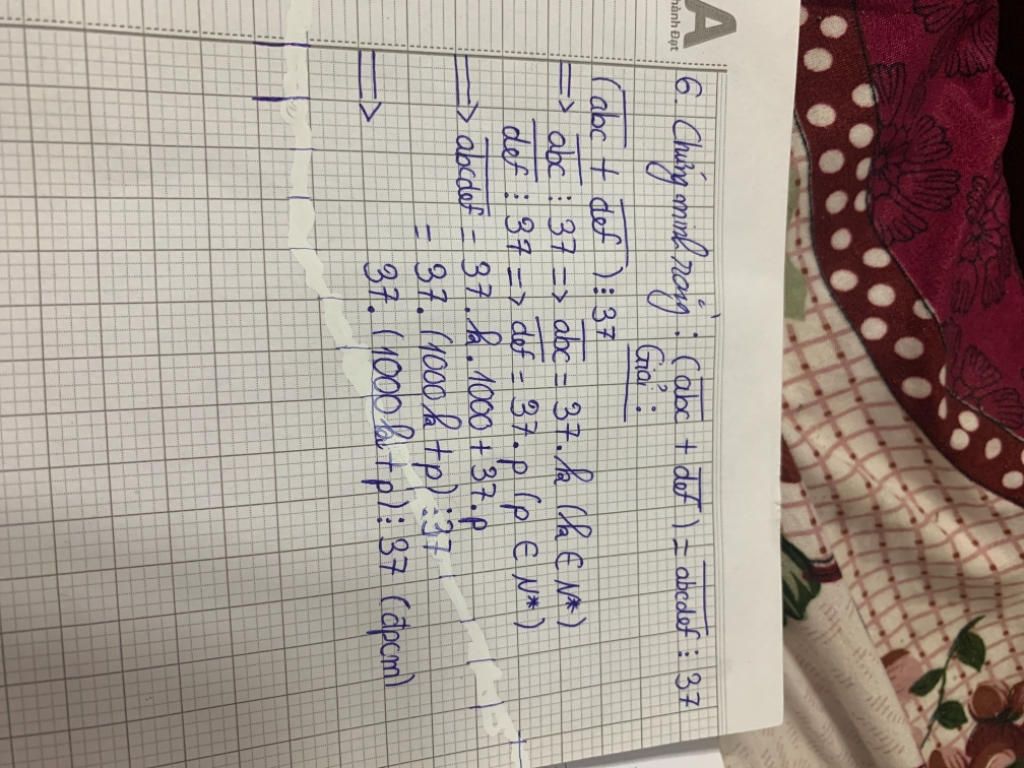 A
hành Đạt
6. Chứng minh rằng : (abc + def) = abcdef ⋮ 37
Giải :
(abc + def) ⋮ 37
=> abc ⋮ 37 => abc = 37 . k (k ∈ N*)
def ⋮ 37 => def = 37 . p (p ∈ N*)
=> abcdef = 37 . k . 1000 + 37 . p
= 37 . (1000k + p) ⋮ 37
=> 37 . (1000k + p) ⋮ 37 (đpcm)